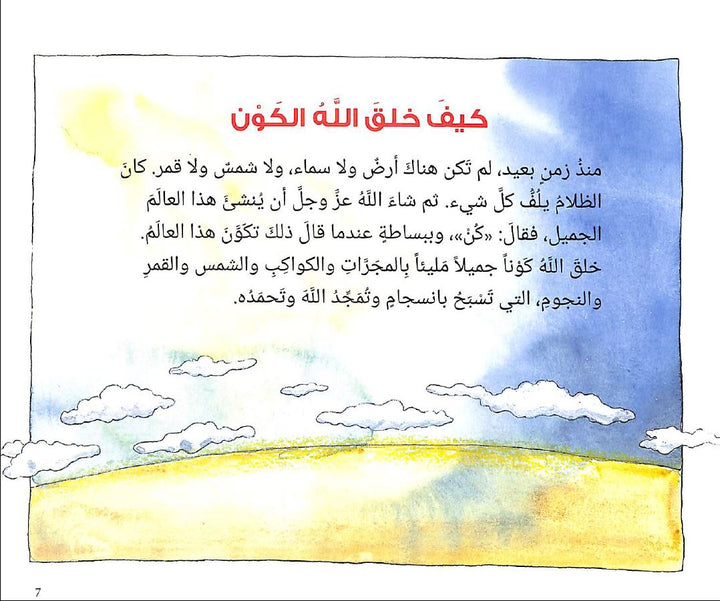 كيفَ خلقَ اللَّهُ الكَوْن
منذُ زمنٍ بعيد، لم تَكن هناكَ أرضٌ ولا سماء، ولا شمسٌ ولا قمر. كانَ
الظلامُ يلُفُّ كلَّ شيء. ثم شاءَ اللَّهُ عزَّ وجلَّ أن يُنشئَ هذا العالَمَ
الجميل، فقالَ: «كُنْ»، وببساطةٍ عندما قالَ ذلكَ تكوَّنَ هذا العالَمُ.
خلقَ اللَّهُ كَوْناً جميلاً مَليئاً بِالمجَرَّاتِ والكواكِبِ والشمس والقمرِ
والنجومِ، التي تَسْبَحُ بانسجامٍ وتُمَجِّدُ اللَّهَ وتَحمَدُه.
7